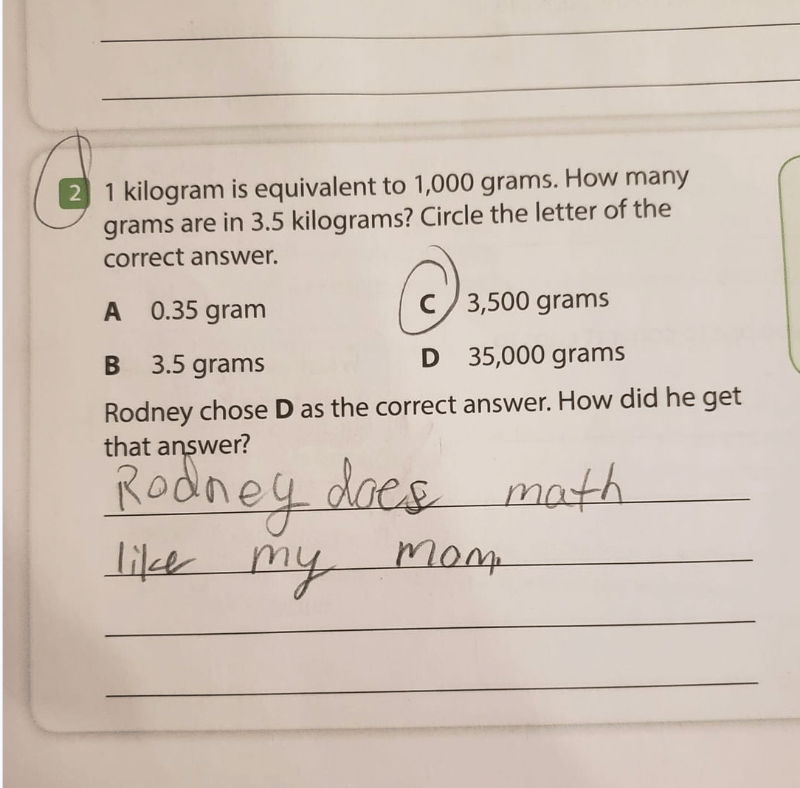 2 1 kilogram is equivalent to 1,000 grams. How many
grams are in 3.5 kilograms? Circle the letter of the
correct answer.
A 0.35 gram
C 3,500 grams
B 3.5 grams
D 35,000 grams
Rodney chose D as the correct answer. How did he get
that answer?
Rodney does math
like my mom